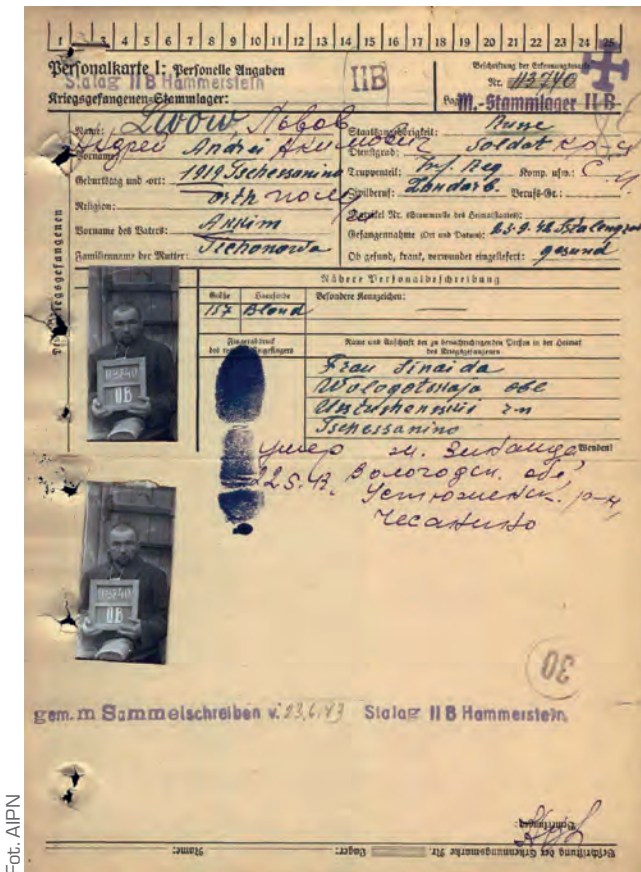 1 3 4 5 6 7 8 9 10 11 12 13 14 15 16 17 18 19 20 21 22 23 24 25
Personalkarte I: Personelle Angaben
Stalag II B Hammerstein
Kriegsgefangenen-Stammlager:
IIB
Beschriftung der Erkennungsmarke
Nr. 113740
Lag M.-Stammlager II B
Des Kriegsgefangenen
Name: Lwow, Львов
Андрей Акимович
Vorname: Andrei
Geburtstag und -ort: 1919 Tschessanino
Religion: orth
Vorname des Vaters: Akkim
Familienname der Mutter: Tichonowa
Staatsangehörigkeit: Russe
Dienstgrad: Soldat
Truppenteil: Inf. Reg Komp. usw.:
Zivilberuf: Landarb. Berufs-Gr.:
Matrikel Nr. (Stammrolle des Heimatstaates):
Gefangennahme (Ort und Datum): 23.9.42 Stalengrad
Ob gesund, krank, verwundet eingeliefert: gesund
Nähere Personalbeschreibung
Größe Haarfarbe Besondere Kennzeichen:
157 Blond
Fingerabdruck
des rechten Zeigefingers
Name und Anschrift der zu benachrichtigenden Person in der Heimat
des Kriegsgefangenen
Frau Sinaida
Wologotskaja obl
Tschessanino
Wenden!
113740
IIB
умер ж. Зинаида
22.5.43. Вологодск. обл,
Устюженск. р-н,
Чесанино
113740
IIB
30
gem. m Sammelschreiben v. 23.6.43 Stalag II B Hammerstein.
Bemerkungen:
Beschriftung der Erkennungsmarke Nr. Lager: Name:
Fot. AIPN